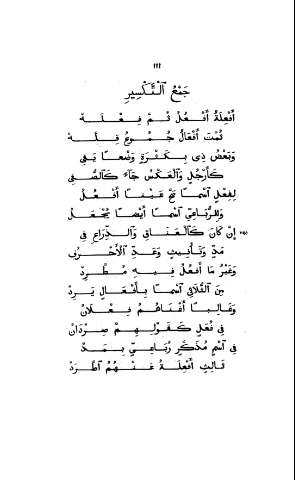 ١١١
جَمْعُ ٱلتَّكْسِيرِ
أَفْعِلَةٌ أَفْعُلُ ثُمَّ فِعْلَهْ
ثُمَّتَ أَفْعَالٌ جُمُوعُ قِلَّهْ
وَبَعْضُ ذِي بِكَثْرَةٍ وَضْعًا يَفِي
كَأَرْجُلٍ وَٱلْعَكْسُ جَاءَ كَٱلصُّفِي
لِفَعْلٍ ٱسْمًا صَحَّ عَيْنًا أَفْعُلُ
وَلِلرُّبَاعِيِّ ٱسْمًا أَيْضًا يُجْعَلُ
إِنْ كَانَ كَٱلْعَنَاقِ وَٱلذِّرَاعِ فِي
مَدٍّ وَتَأْنِيثٍ وَعَدِّ ٱلْأَحْرُفِ
وَغَيْرُ مَا أَفْعُلُ فِيهِ مُطَّرِدْ
مِنَ ٱلثُّلَاثِي ٱسْمًا بِأَفْعَالٍ يَرِدْ
وَغَالِبًا أَغْنَاهُمُ فِعْلَانُ
فِي فُعَلٍ كَقَوْلِهِمْ صِرْدَانُ
فِي ٱسْمٍ مُذَكَّرٍ رُبَاعِيٍّ بِمَدّْ
ثَالِثٍ أَفْعِلَةُ عَنْهُمُ ٱطَّرَدْ